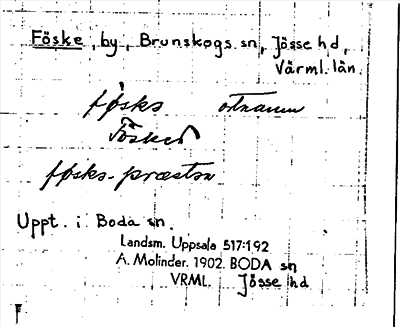 Föske, by, Brunskogs sn, Jösse hd,
Värml. län.
føsks ortnamn
Fösked
føsks-præstn
Uppt. i Boda sn.
Landsm. Uppsala 517:192
A. Molinder. 1902. BODA sn
VRML. Jösse hd